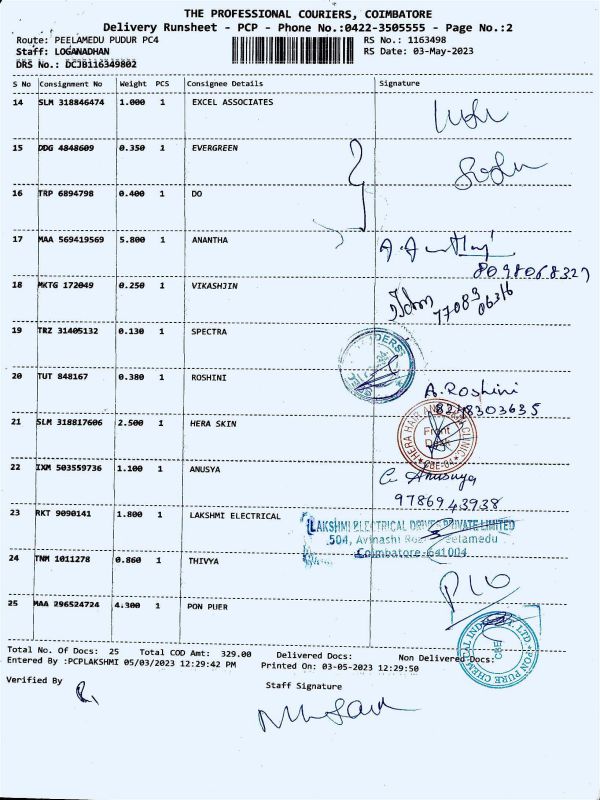 THE PROFESSIONAL COURIERS, COIMBATORE
Delivery Runsheet - PCP - Phone No.:0422-3505555 - Page No.:2
Route: PEELAMEDU PUDUR PC4 RS No.: 1163498
Staff: LOGANADHAN RS Date: 03-May-2023
DRS No.: DCJB116349802
S No Consignment No Weight PCS Consignee Details Signature
14 SLM 318846474 1.000 1 EXCEL ASSOCIATES
15 DDG 4848609 0.350 1 EVERGREEN
16 TRP 6894798 0.400 1 DO
17 MAA 569419569 5.800 1 ANANTHA
8098068327
18 MKTG 172049 0.250 1 VIKASHJIN
77083
06316
19 TRZ 31405132 0.130 1 SPECTRA
20 TUT 848167 0.380 1 ROSHINI
A.Roshini
8248303635
21 SLM 318817606 2.500 1 HERA SKIN
Front
22 IXM 503559736 1.100 1 ANUSYA
C Anusuya
9786943938
23 RKT 9090141 1.800 1 LAKSHMI ELECTRICAL
LAKSHMI ELECTRICAL DRIVES PRIVATE LIMITED
504, Avinashi Road Peelamedu
Coimbatore-641004
24 TNM 1011278 0.860 1 THIVYA
25 MAA 296524724 4.300 1 PON PUER
PON PURE CHEMICAL INDIA PVT. LTD
CBE
Total No. Of Docs: 25 Total COD Amt: 329.00 Delivered Docs: Non Delivered Docs:
Entered By :PCPLAKSHMI 05/03/2023 12:29:42 PM Printed On: 03-05-2023 12:29:50
Verified By Staff Signature